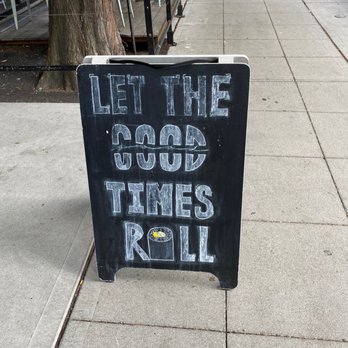 LET THE
GOOD
TIMES
ROLL